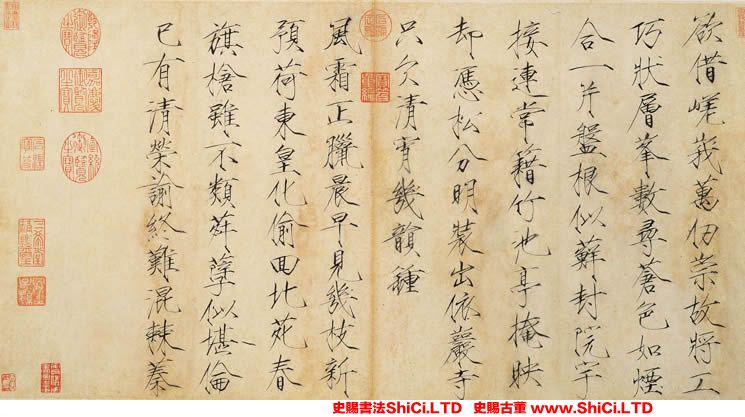 欲借嵯峩萬仞崇故將工
巧狀層峯數尋蒼色如煙
合一片盤根似蘚封院宇
接連常藉竹池亭掩映
却憑松分明裝出依巖寺
只欠清宵幾韻鍾
風霜正臘晨早見幾枝新
預荷東皇化偷回北苑春
旗槍雖不類荈孽似堪倫
已有清榮諭終難混棘蓁
嘉慶御覽之寶
史賜書法ShiCi.LTD 史賜古董 www.ShiCi.LTD